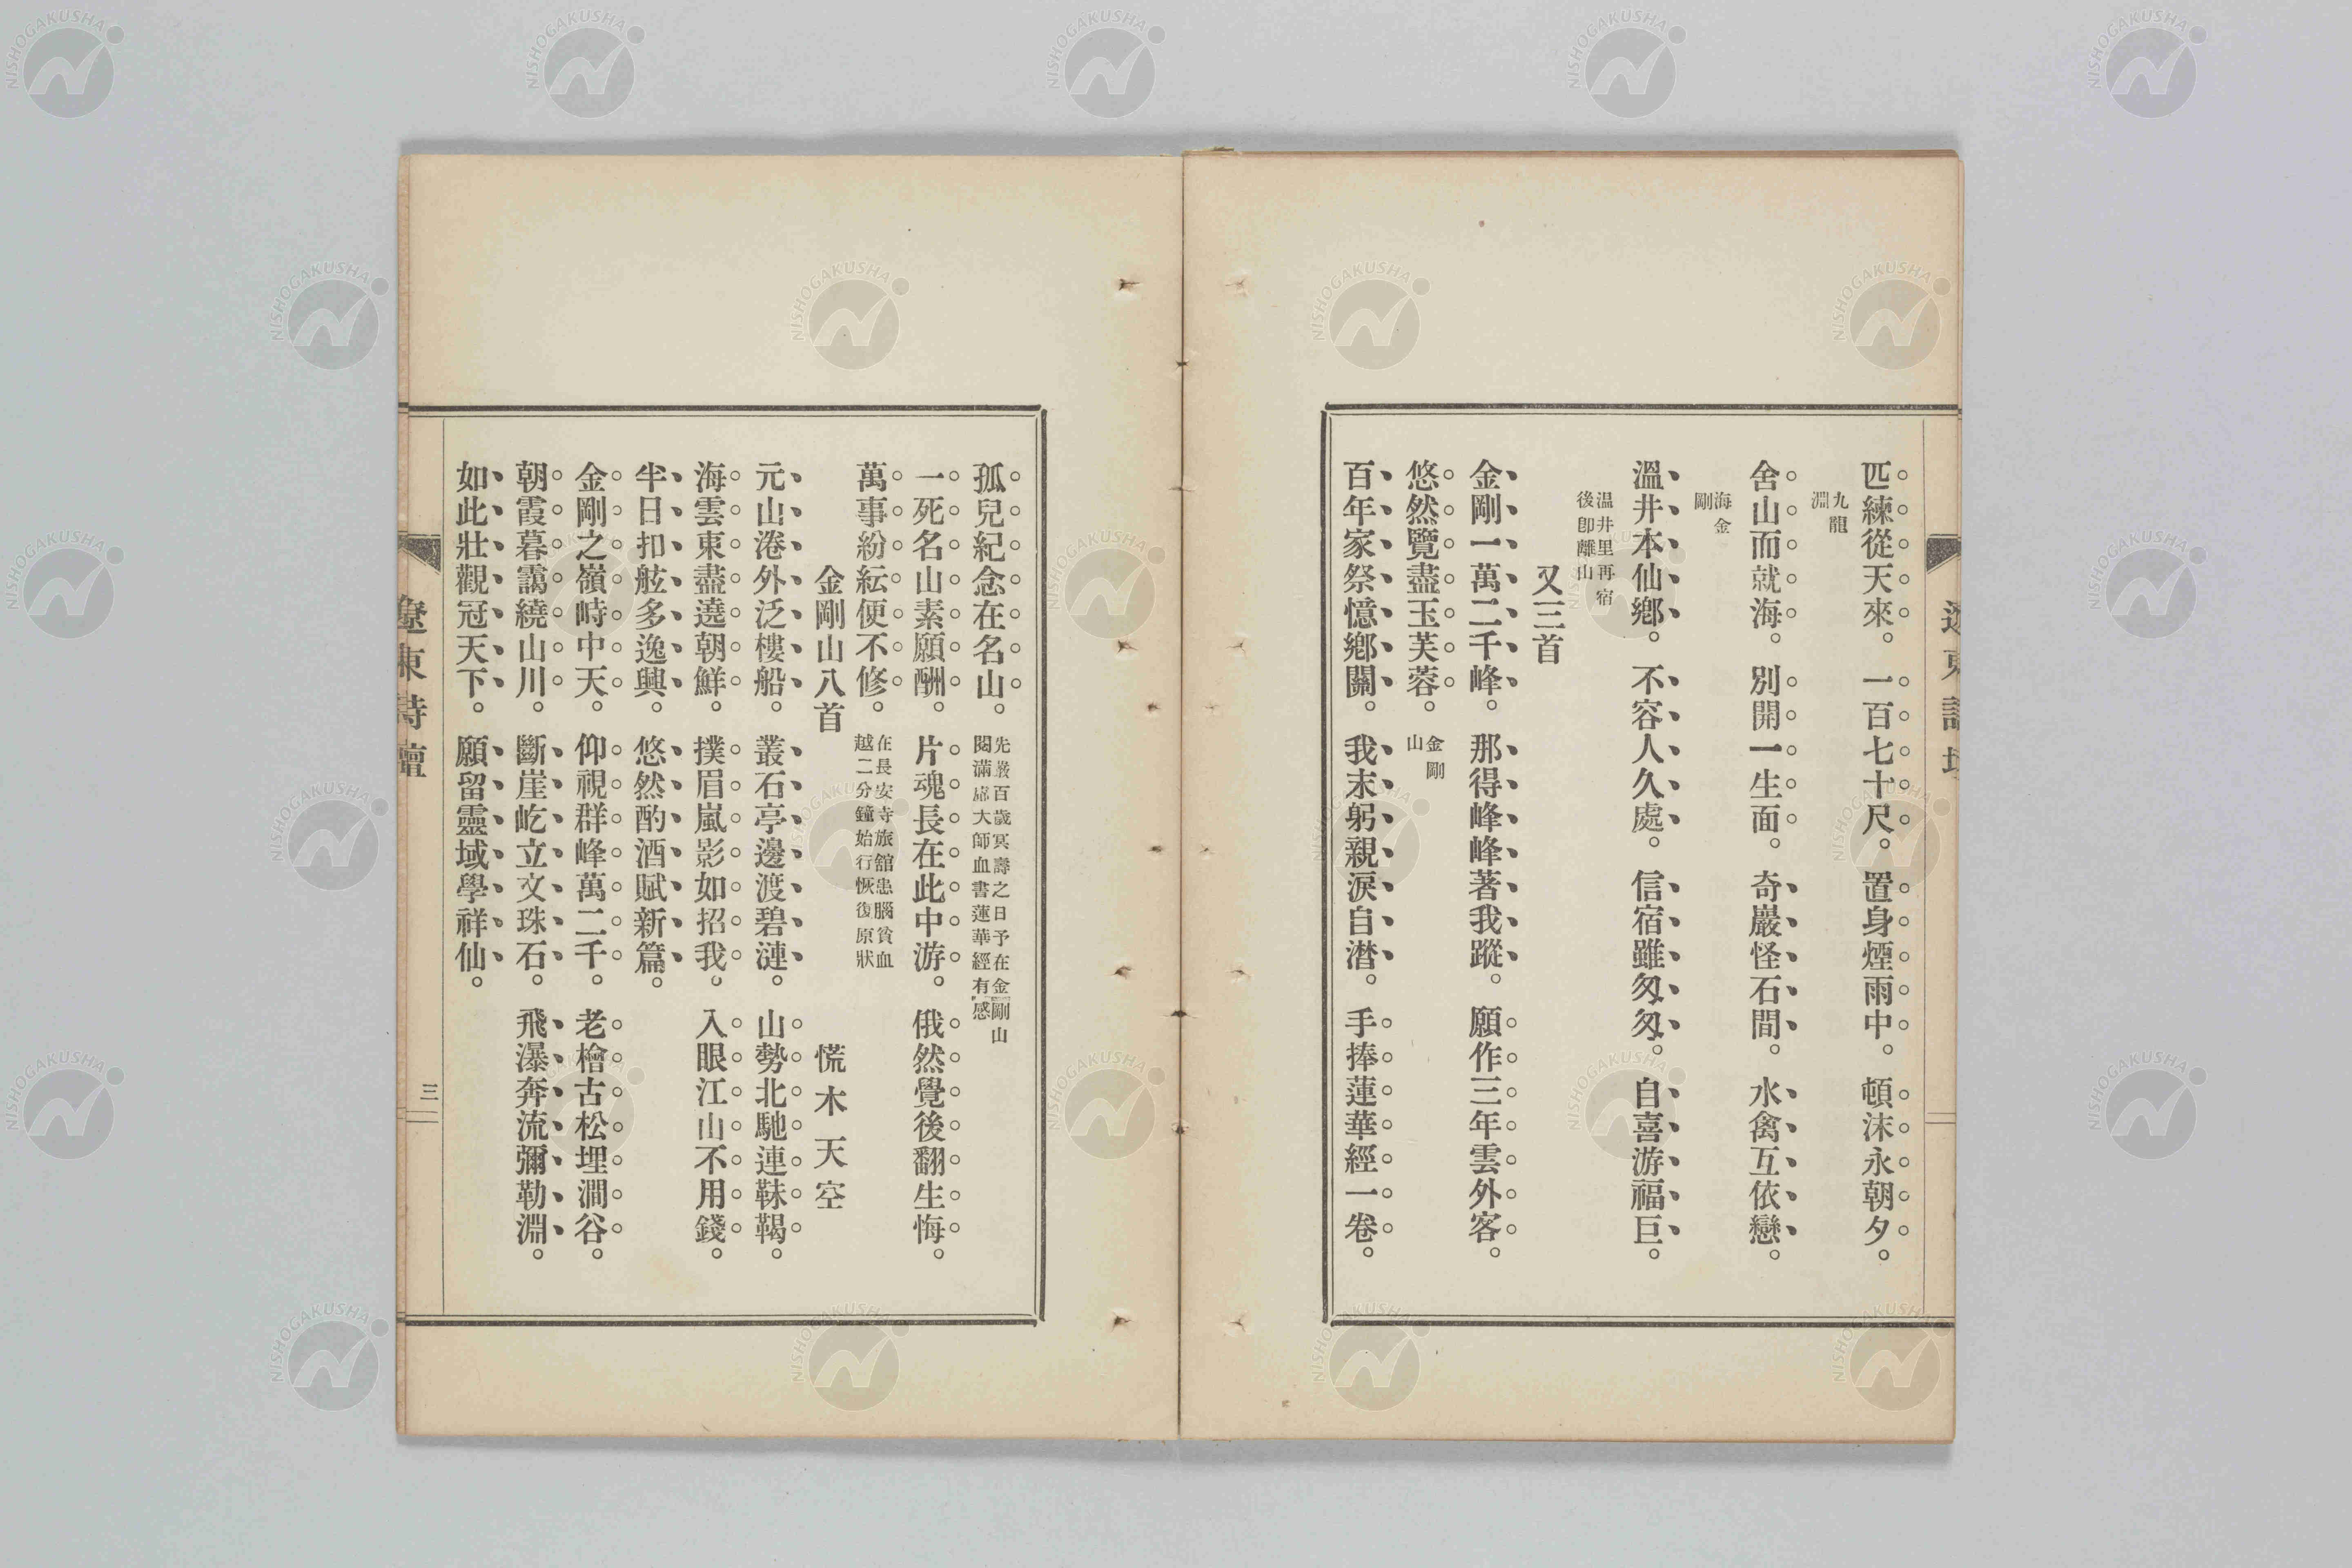 匹練從天來。一百七十尺。置身煙雨中。頓沫永朝夕。
九龍
淵
舍山而就海。別開一生面。奇巖怪石間。水禽互依戀。
海金
剛
溫井本仙鄕。不容人久處。信宿雖匆匆。自喜游福巨。
溫井里再宿
後卽離山
又三首
金剛一萬二千峰。那得峰峰著我蹤。願作三年雲外客。
悠然覽盡玉芙蓉。
金剛
山
百年家祭憶鄕關。我末躬親淚自潸。手捧蓮華經一卷。
孤兒紀念在名山。
先嚴百歲冥壽之日予在金剛山
閱滿虛大師血書蓮華經有感
一死名山素願酬。片魂長在此中游。俄然覺後翻生悔。
萬事紛紜便不修。
在長安寺旅舘患腦貧血
越二分鐘始行恢復原狀
金剛山八首 慌木天空
元山港外泛樓船。叢石亭邊渡碧漣。山勢北馳連靺鞨。
海雲東盡遶朝鮮。撲眉嵐影如招我。入眼江山不用錢。
半日扣舷多逸興。悠然酌酒賦新篇。
金剛之嶺峙中天。仰視群峰萬二千。老檜古松埋澗谷。
朝霞暮靄繞山川。斷崖屹立文珠石。飛瀑奔流彌勒淵。
如此壯觀冠天下。願留靈域學祥仙。
遼東詩壇
三
NISHOGAKUSHA